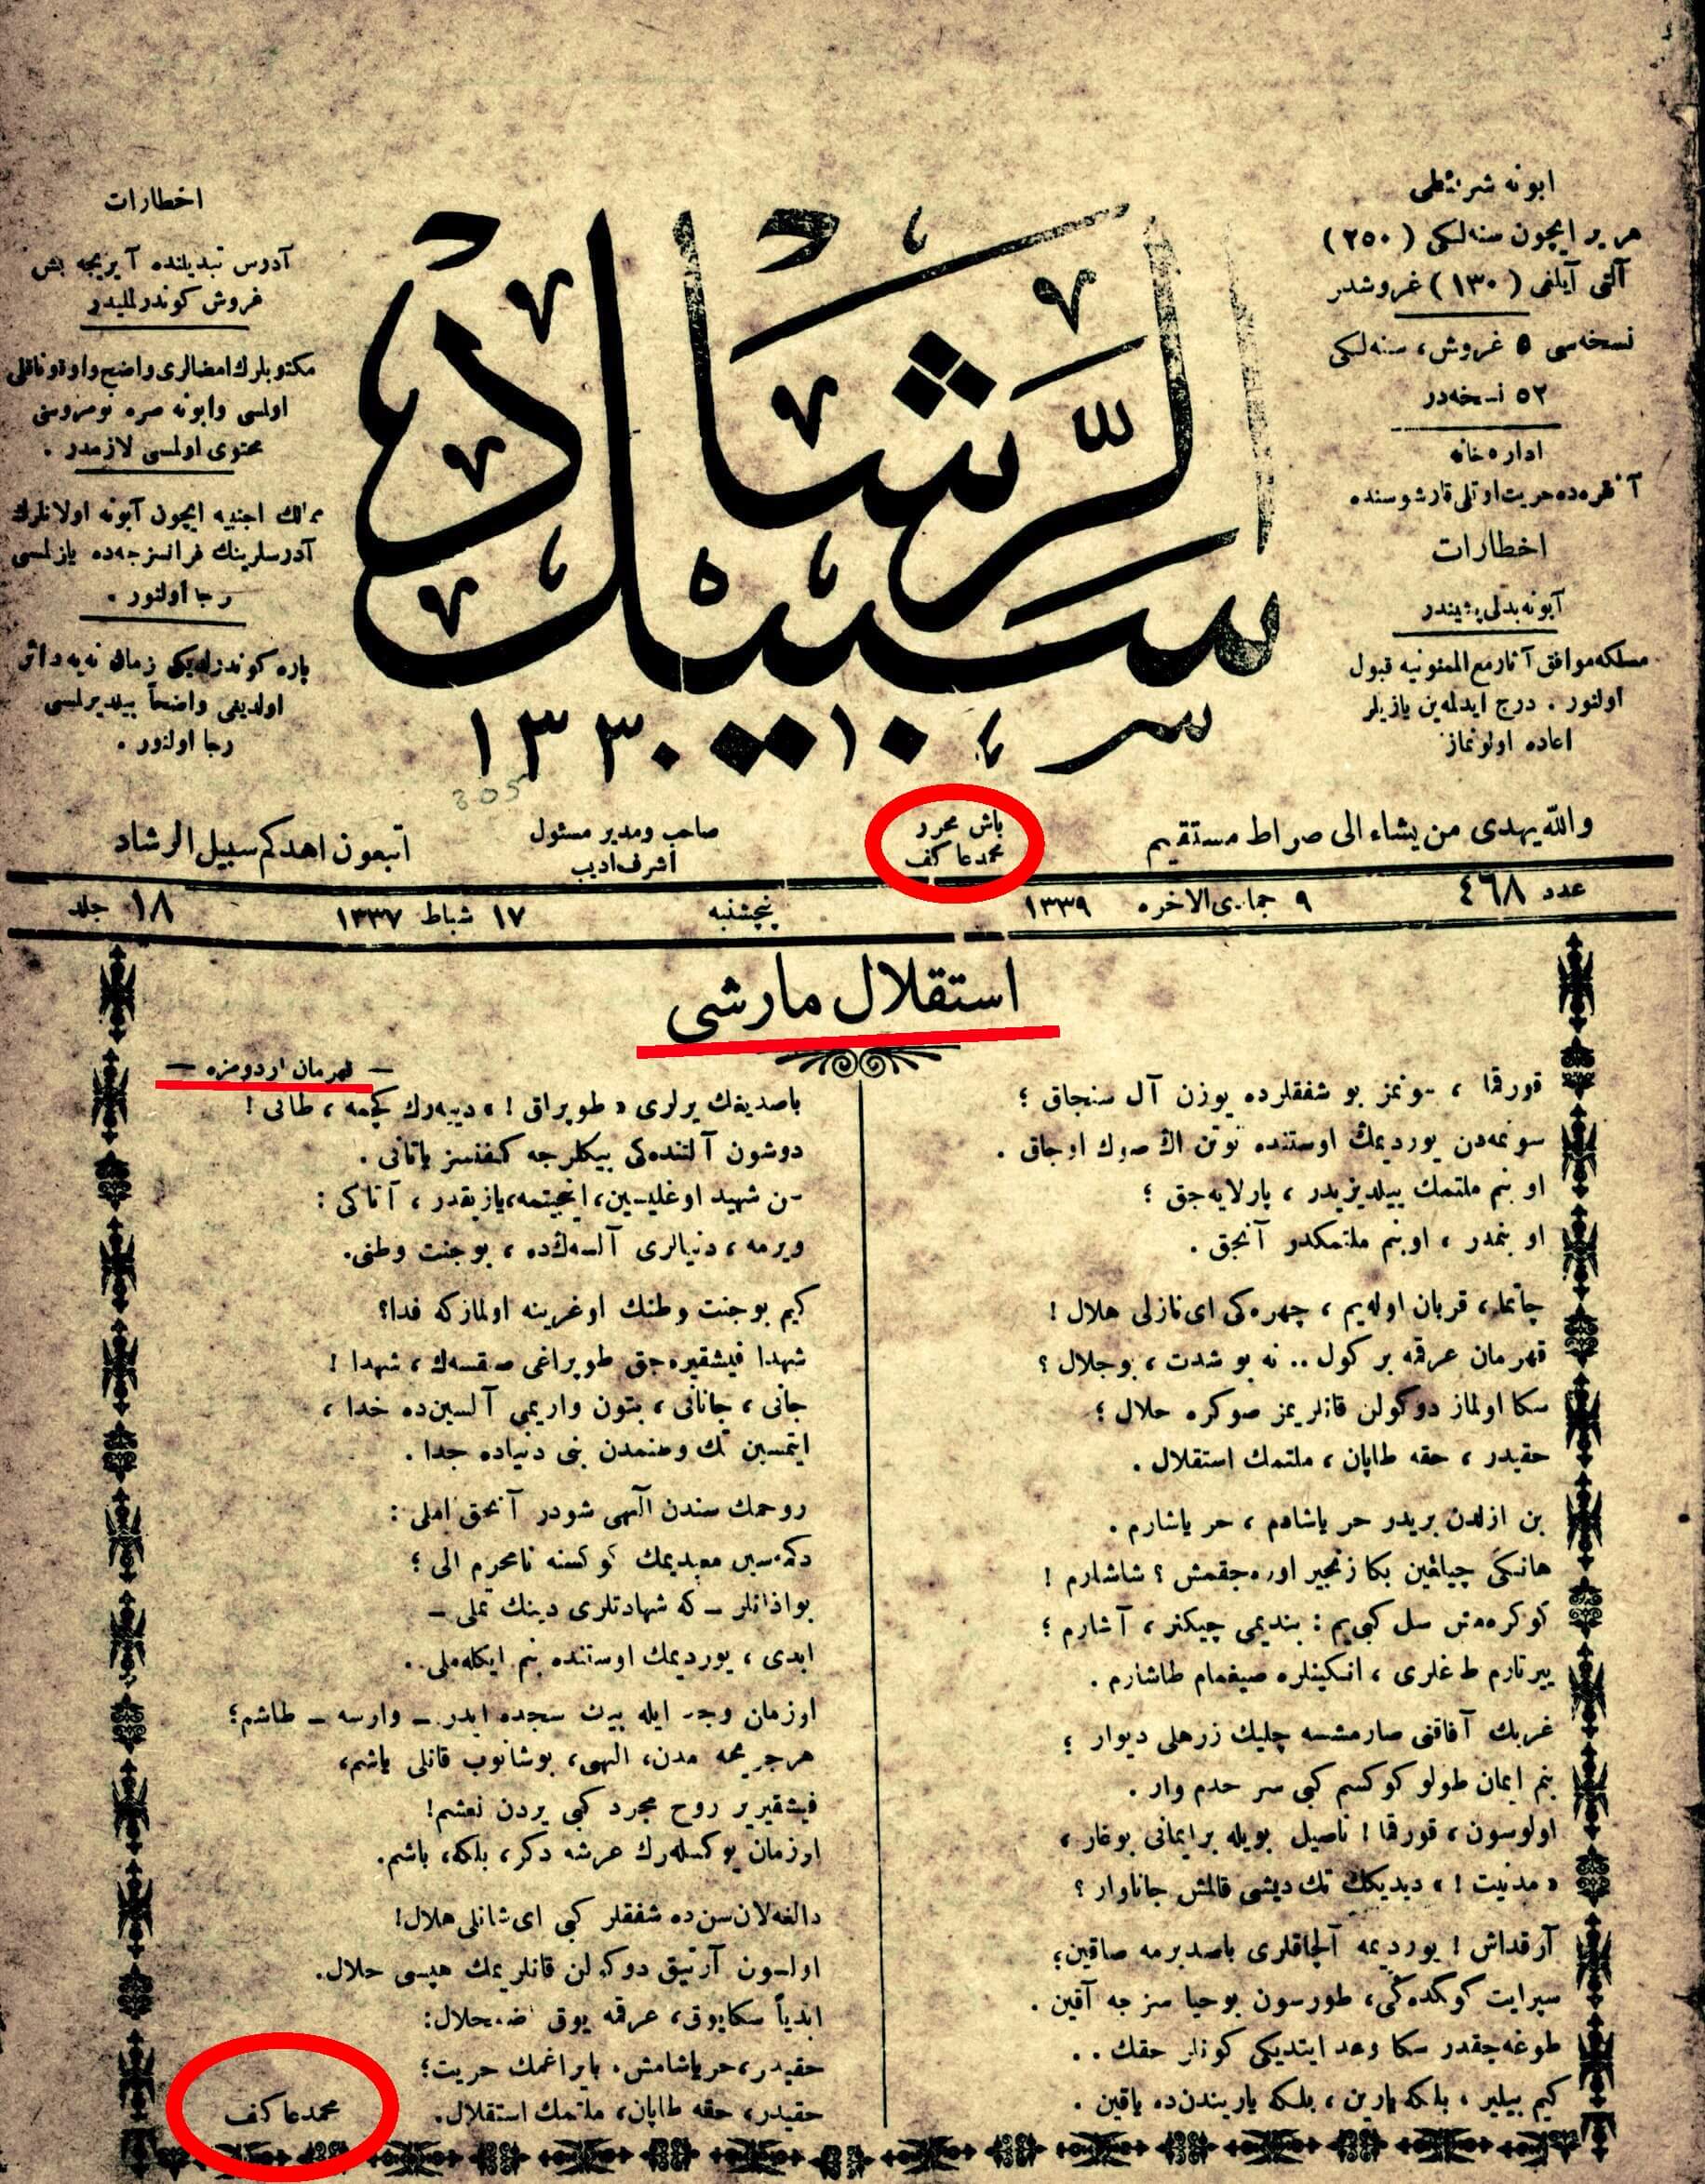 ابونه شرائطی
هر یر ایچون سنه‌لكی (٢٥٠)
آلتی آیلغی (١٣٠) غروشدر
نسخه‌سی ٥ غروش، سنه‌لكی
٥٢ نسخه‌در
اداره‌خانه
آنقره‌ده حریت اوتلی قارشوسنده
اخطارات
آبونه بدلی پشیندر
مسلكه موافق آثار مع الممنونیه قبول
اولنور . درج ایدلمه‌ین یازیلر
اعاده اولونماز
سبیل الرشاد
١٣٣٠
اخطارات
آدرس تبدیلنده آیریجه بش
غروش كوندرلملیدر
مكتوبلرك امضالری واضح واوقوناقلی
اولمسی وابونه صره نومروسنی
محتوی اولمسی لازمدر .
ممالك اجنبیه ایچون آبونه اولانلرك
آدرسلرینك فرانسزجه‌ده یازلمسی
رجا اولنور .
پاره كوندرلدیكی زمان نه‌یه دائر
اولدیغی واضحاً بیلدیرلمسی
رجا اولنور .
305
والله یهدی من یشاء الی صراط مستقیم
باش محرر
محمد عاكف
صاحب ومدیر مسئول
اشرف ادیب
اتبعون اهدكم سبیل الرشاد
عدد ٤٦٨
٩ جمادی الاخره ١٣٣٩
پنچشنبه
١٧ شباط ١٣٣٧
جلد ١٨
استقلال مارشی
— قهرمان اردومزه —
قورقما ، سونمز بو شفقلرده یوزن آل سنجاق ؛
سونمه‌دن یوردیمڭ اوستنده توتن اڭ صوڭ اوجاق .
او بنم ملتمڭ ییلدیزیدر ، پارلایه‌جق ؛
او بنمدر ، او بنم ملتمكدر آنجق .
چاتما، قربان اوله‌یم ، چهره‌كی ای نازلی هلال !
قهرمان عرقمه بر كول .. نه بو شدت ، بو جلال ؟
سكا اولماز دوكولن قانلریمز صوكره حلال ؛
حقیدر ، حقه طاپان ، ملتمك استقلال .
بن ازلدن بریدر حر یاشادم ، حر یاشارم .
هانكی چیلغین بكا زنجیر اوره‌جقمش ؟ شاشارم !
كوكره‌مش سل كبی‌یم : بندیمی چیكنر ، آشارم ؛
ییرتارم طاغلری ، انكینلره صیغمام طاشارم .
غربك آفاقنی صارمشسه چلیك زرهلی دیوار ؛
بنم ایمان طولو كوكسم كبی سر حدم وار .
اولوسون ، قورقما ! ناصیل بویله بر ایمانی بوغار ،
« مدنیت ! » دیدیكك تك دیشی قالمش جاناوار ؟
آرقداش ! یوردیمه آلچاقلری باصدیرمه صاقین؛
سپر ایت كوكده‌كی، طورسون بو حیا سزجه آقین .
طوغه‌جقدر سكا وعد ایتدیكی كونلر حقك . .
كیم بیلیر ، بلكه یارین ، بلكه یاریندن ده یاقین .
باصدیغك یرلری « طوپراق ! » دییه‌رك كچمه ، طانی !
دوشون آلتنده‌كی بیكلرجه كفنسز یاتانی .
سن شهید اوغلیسین، اینجیتمه، یازیقدر ، آتاكی :
ویرمه ، دنیالری آلسه‌ڭ‌ده ، بو جنت وطنی.
كیم بو جنت وطنك اوغرینه اولمازكه فدا؟
شهدا فیشقیره‌جق طوپراغی صیقسه‌ك ، شهدا !
جانی ، جانانی ، بتون واریمی آلسین ده خدا ،
ایتمسین تك وطنمدن بنی دنیاده جدا .
روحمك سندن الٓهی شودر آنجق املی :
دكمه‌سین معبدیمك كوكسنه نامحرم الی ؛
بو اذانلر ـ كه شهادتلری دینك تملی ـ
ابدی ، یوردیمك اوستنده بنم ایكله‌ملی .
او زمان وجد ایله بیك سجده ایدر ـ وارسه ـ طاشم؛
هر جریحه‌مدن، الهی، بوشانوب قانلی یاشم،
فیشقیریر روح مجرد كبی یردن نعشم!
او زمان یوكسله‌رك عرشه دكر، بلكه، باشم.
دالغه‌لان سن ده شفقلر كبی ای شانلی هلال!
اولسون آرتیق دوكولن قانلریمك هپسی حلال.
ابدیاً سكا یوق، عرقمه یوق اضمحلال:
حقیدر، حر یاشامش، بایراغمك حریت؛
حقیدر، حقه طاپان، ملتمك استقلال.
محمد عاكف